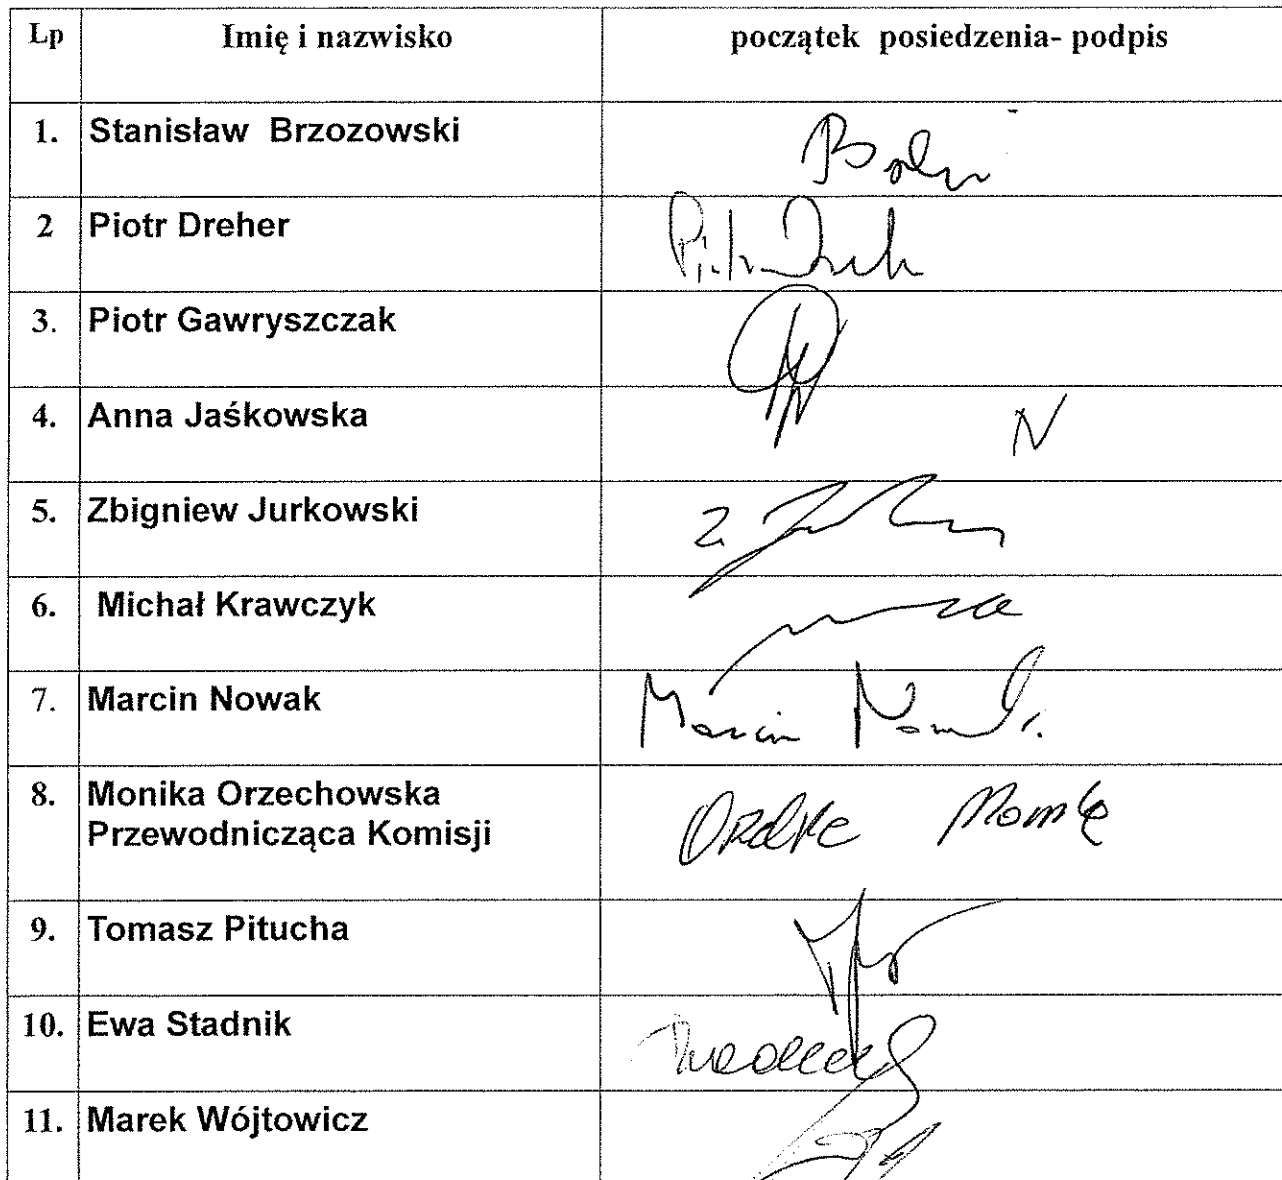 Lp Imię i nazwisko początek posiedzenia- podpis
1. Stanisław Brzozowski
2 Piotr Dreher
3. Piotr Gawryszczak
4. Anna Jaśkowska N
5. Zbigniew Jurkowski
6. Michał Krawczyk
7. Marcin Nowak Marcin Nowak
8. Monika Orzechowska
Przewodnicząca Komisji
9. Tomasz Pitucha
10. Ewa Stadnik
11. Marek Wójtowicz